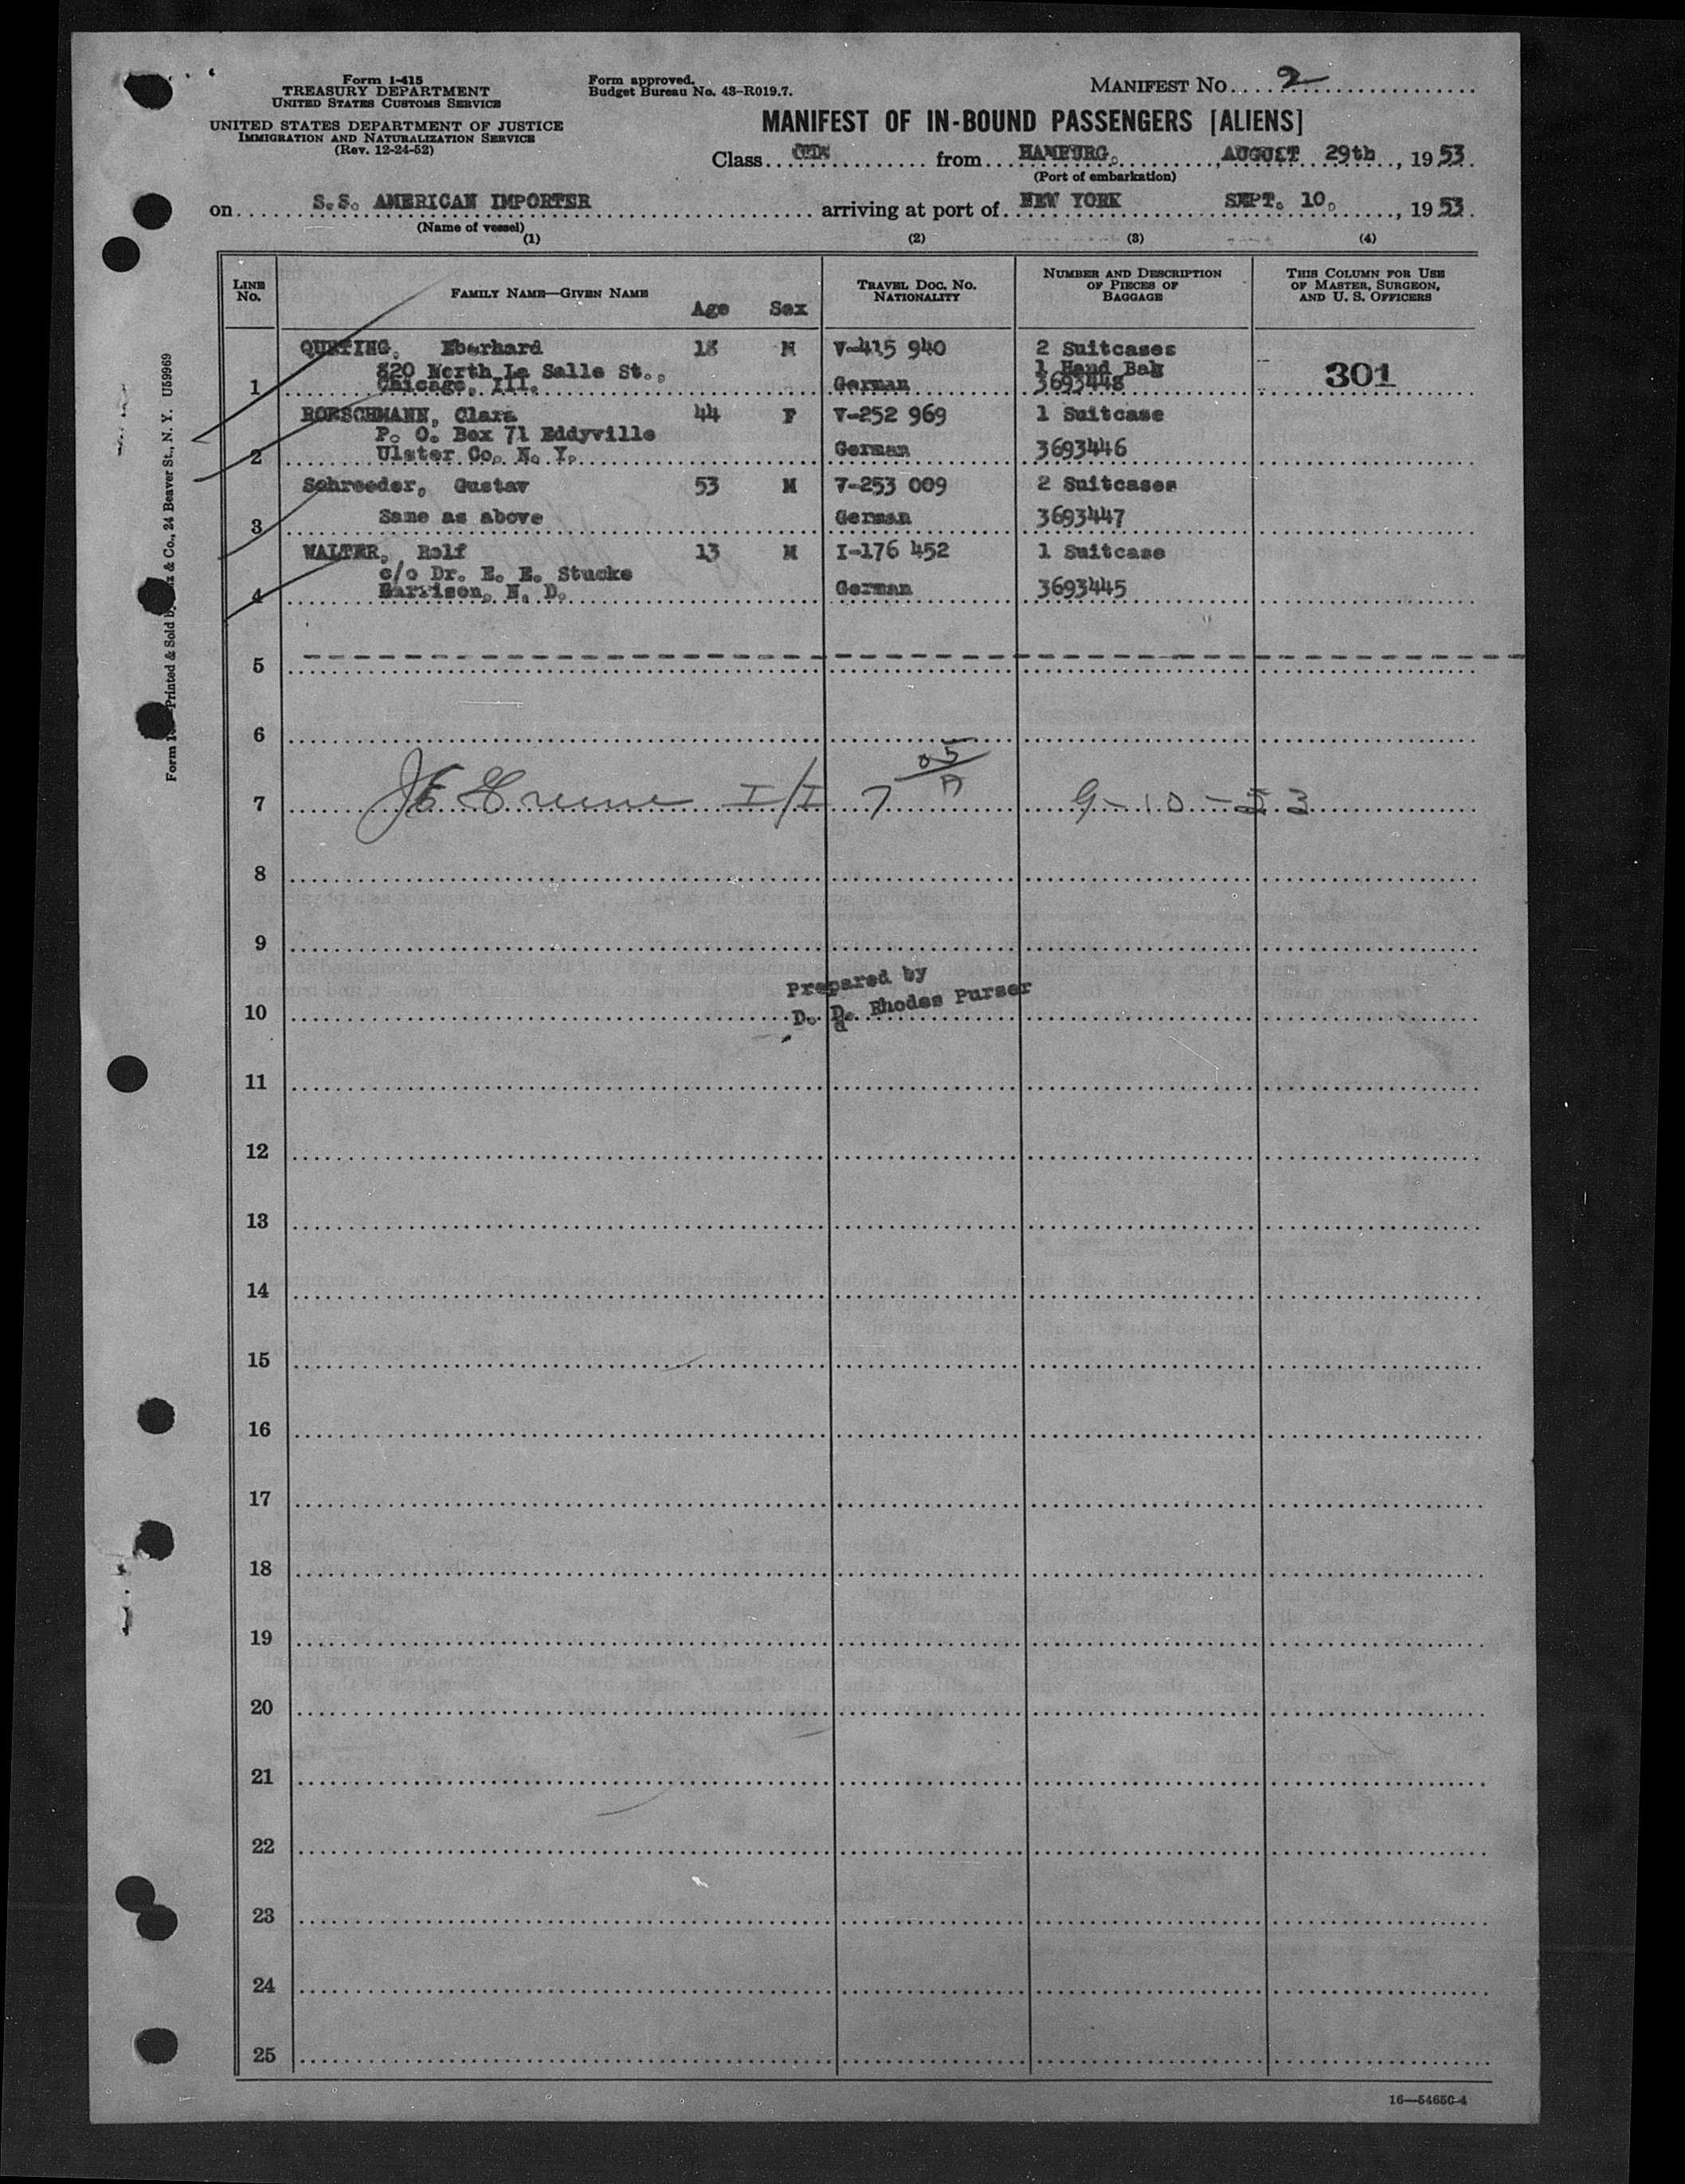 Form I-415
TREASURY DEPARTMENT
UNITED STATES CUSTOMS SERVICE
UNITED STATES DEPARTMENT OF JUSTICE
IMMIGRATION AND NATURALIZATION SERVICE
(Rev. 12-24-52)
Form approved.
Budget Bureau No. 43-R019.7.
MANIFEST No. 2
MANIFEST OF IN-BOUND PASSENGERS [ALIENS]
Class from HAMBURG, AUGUST 29th, 1953.
(Port of embarkation)
on S.S. AMERICAN IMPORTER arriving at port of NEW YORK SEPT. 10, 1953.
(Name of vessel)
(1) (2) (3) (4)
LINE No. FAMILY NAME—GIVEN NAME Age Sex TRAVEL DOC. NO. NATIONALITY NUMBER AND DESCRIPTION OF PIECES OF BAGGAGE THIS COLUMN FOR USE OF MASTER, SURGEON, AND U. S. OFFICERS
Eberhard 18 M V-415 940 2 Suitcases
820 North La Salle St., 1 Hand Bag
1 Chicago, Ill. German 3693448 301
RORSCHMANN, Clara 44 F V-252 969 1 Suitcase
P. O. Box 71 Eddyville
2 Ulster Co. N. Y. German 3693446
Schroeder, Gustav 53 M 7-253 009 2 Suitcases
3 Same as above German 3693447
WALTER, Rolf 13 M I-176 452 1 Suitcase
c/o Dr. E. E. Stucke
4 Garrison, N. D. German 3693445
5
6
7 J E Greene I/I 7 05/A 9-10-53
8
9
Prepared by
10 D. D. Rhodes Purser
11
12
13
14
15
16
17
18
19
20
21
22
23
24
25
16—54650-4
Printed & Sold & Co., 24 Beaver St., N. Y. U59969